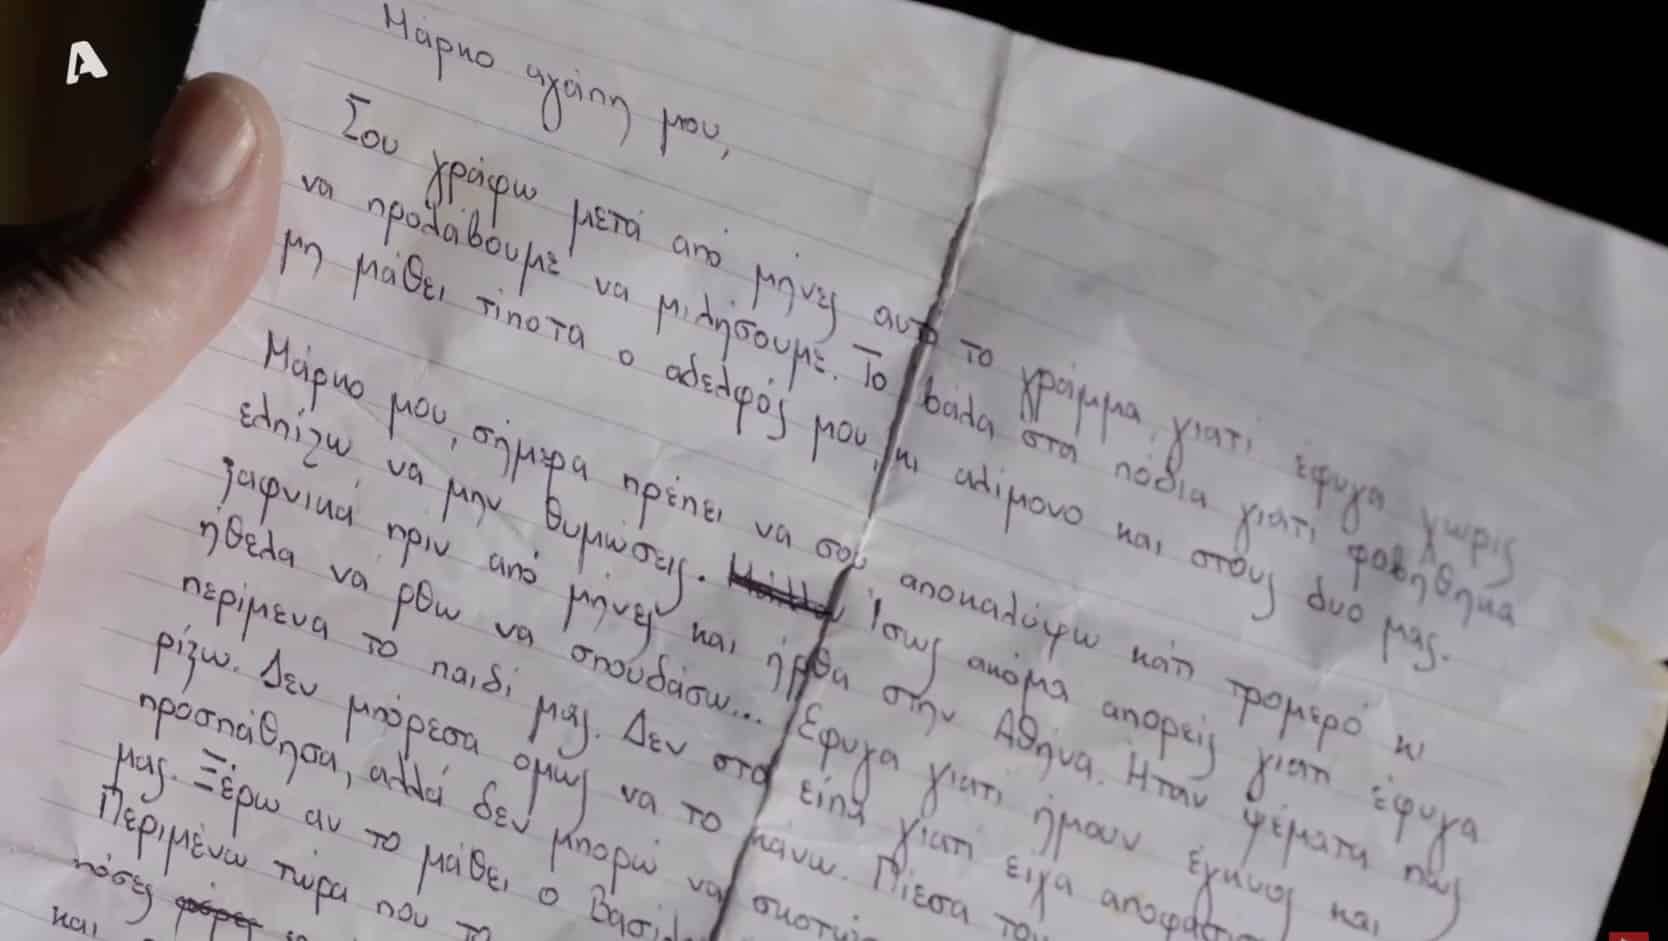 Μάρκο αγάπη μου,
Σου γράφω μετά από μήνες αυτό το γράμμα, γιατί έφυγα χωρίς
να προλάβουμε να μιλήσουμε. Το βάλα στα πόδια γιατί φοβήθηκα
μη μάθει τίποτα ο αδελφός μου, κι αλίμονο και στους δυο μας.
Μάρκο μου, σήμερα πρέπει να σου αποκαλύψω κάτι τρομερό κι
ελπίζω να μην θυμώσεις. Ίσως ακόμα απορείς γιατί έφυγα
ξαφνικά πριν από μήνες και ήρθα στην Αθήνα. Ήταν ψέματα πως
ήθελα να ρθω να σπουδάσω... Έφυγα γιατί ήμουν έγκυος και
περίμενα το παιδί μας. Δεν στο είπα γιατί είχα αποφασι
ρίζω. Δεν μπόρεσα όμως να το κάνω. Πίεσα τον
προσπάθησα, αλλά δεν μπορώ να σκοτώ
μας. Ξέρω αν το μάθει ο Βασίλ
Περιμένω τώρα που το
πόσες φορές
και